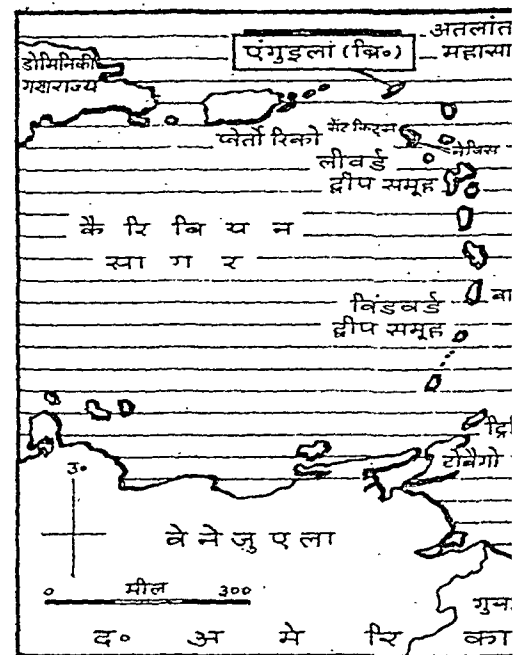 अतलांत
महासा
एंगुइलां (ब्रि०)
डोमिनिकी
गणराज्य
प्वेर्तो रिको
सेंट किट्स
नेविस
लीवर्ड
द्वीप समूह
कै रि बि य न
सा ग र
विंडवर्ड
द्वीप समूह
बा
ट्रि
टोबैगो
उ०
वे ने जु ए ला
० मील ३००
गुया
द० अ मे रि का